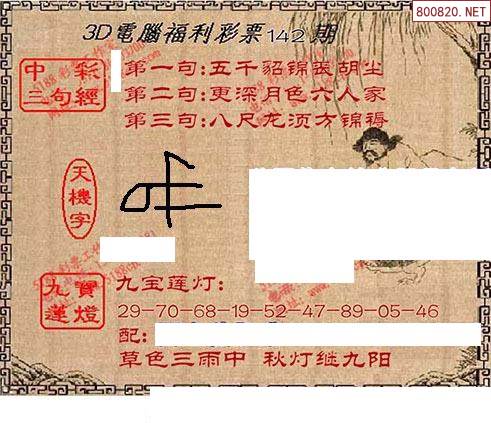 800820.NET
3D電腦福利彩票142期
中彩
三句經
第一句:五千貂锦丧胡尘
第二句:更深月色六人家
第三句:八尺龙须方锦褥
天機字
九寶
蓮燈
九宝莲灯:
29-70-68-19-52-47-89-05-46
配:
草色三雨中 秋灯继九阳